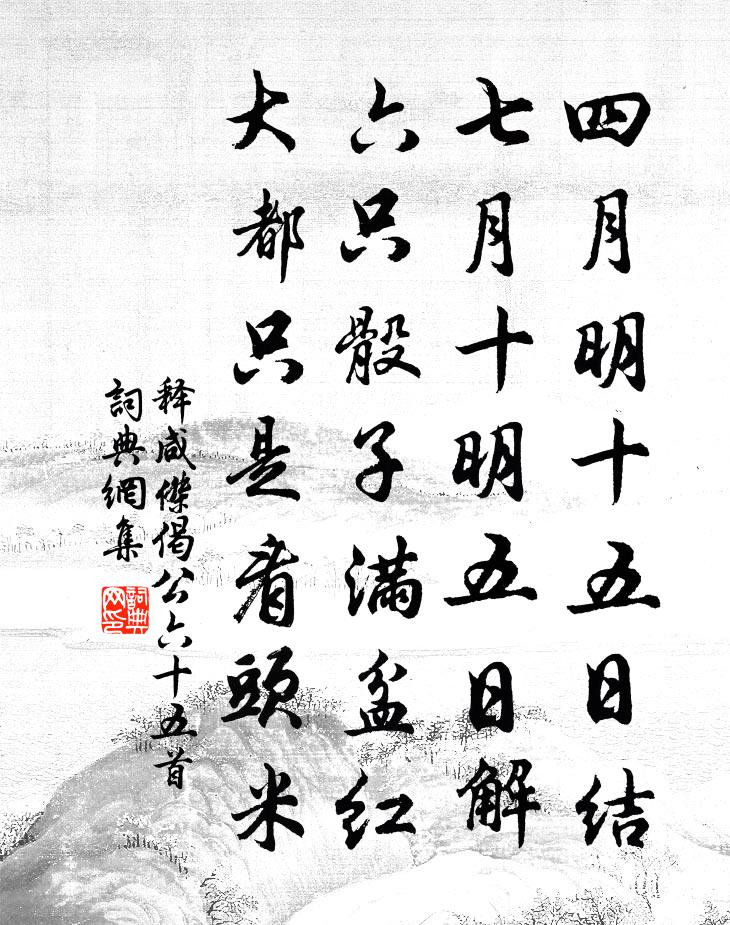 四月明十五日结
七月十明五日解
六只骰子满盆红
大都只是者頭米
释咸傑偈公六十五首
詞典網集
詞典网印